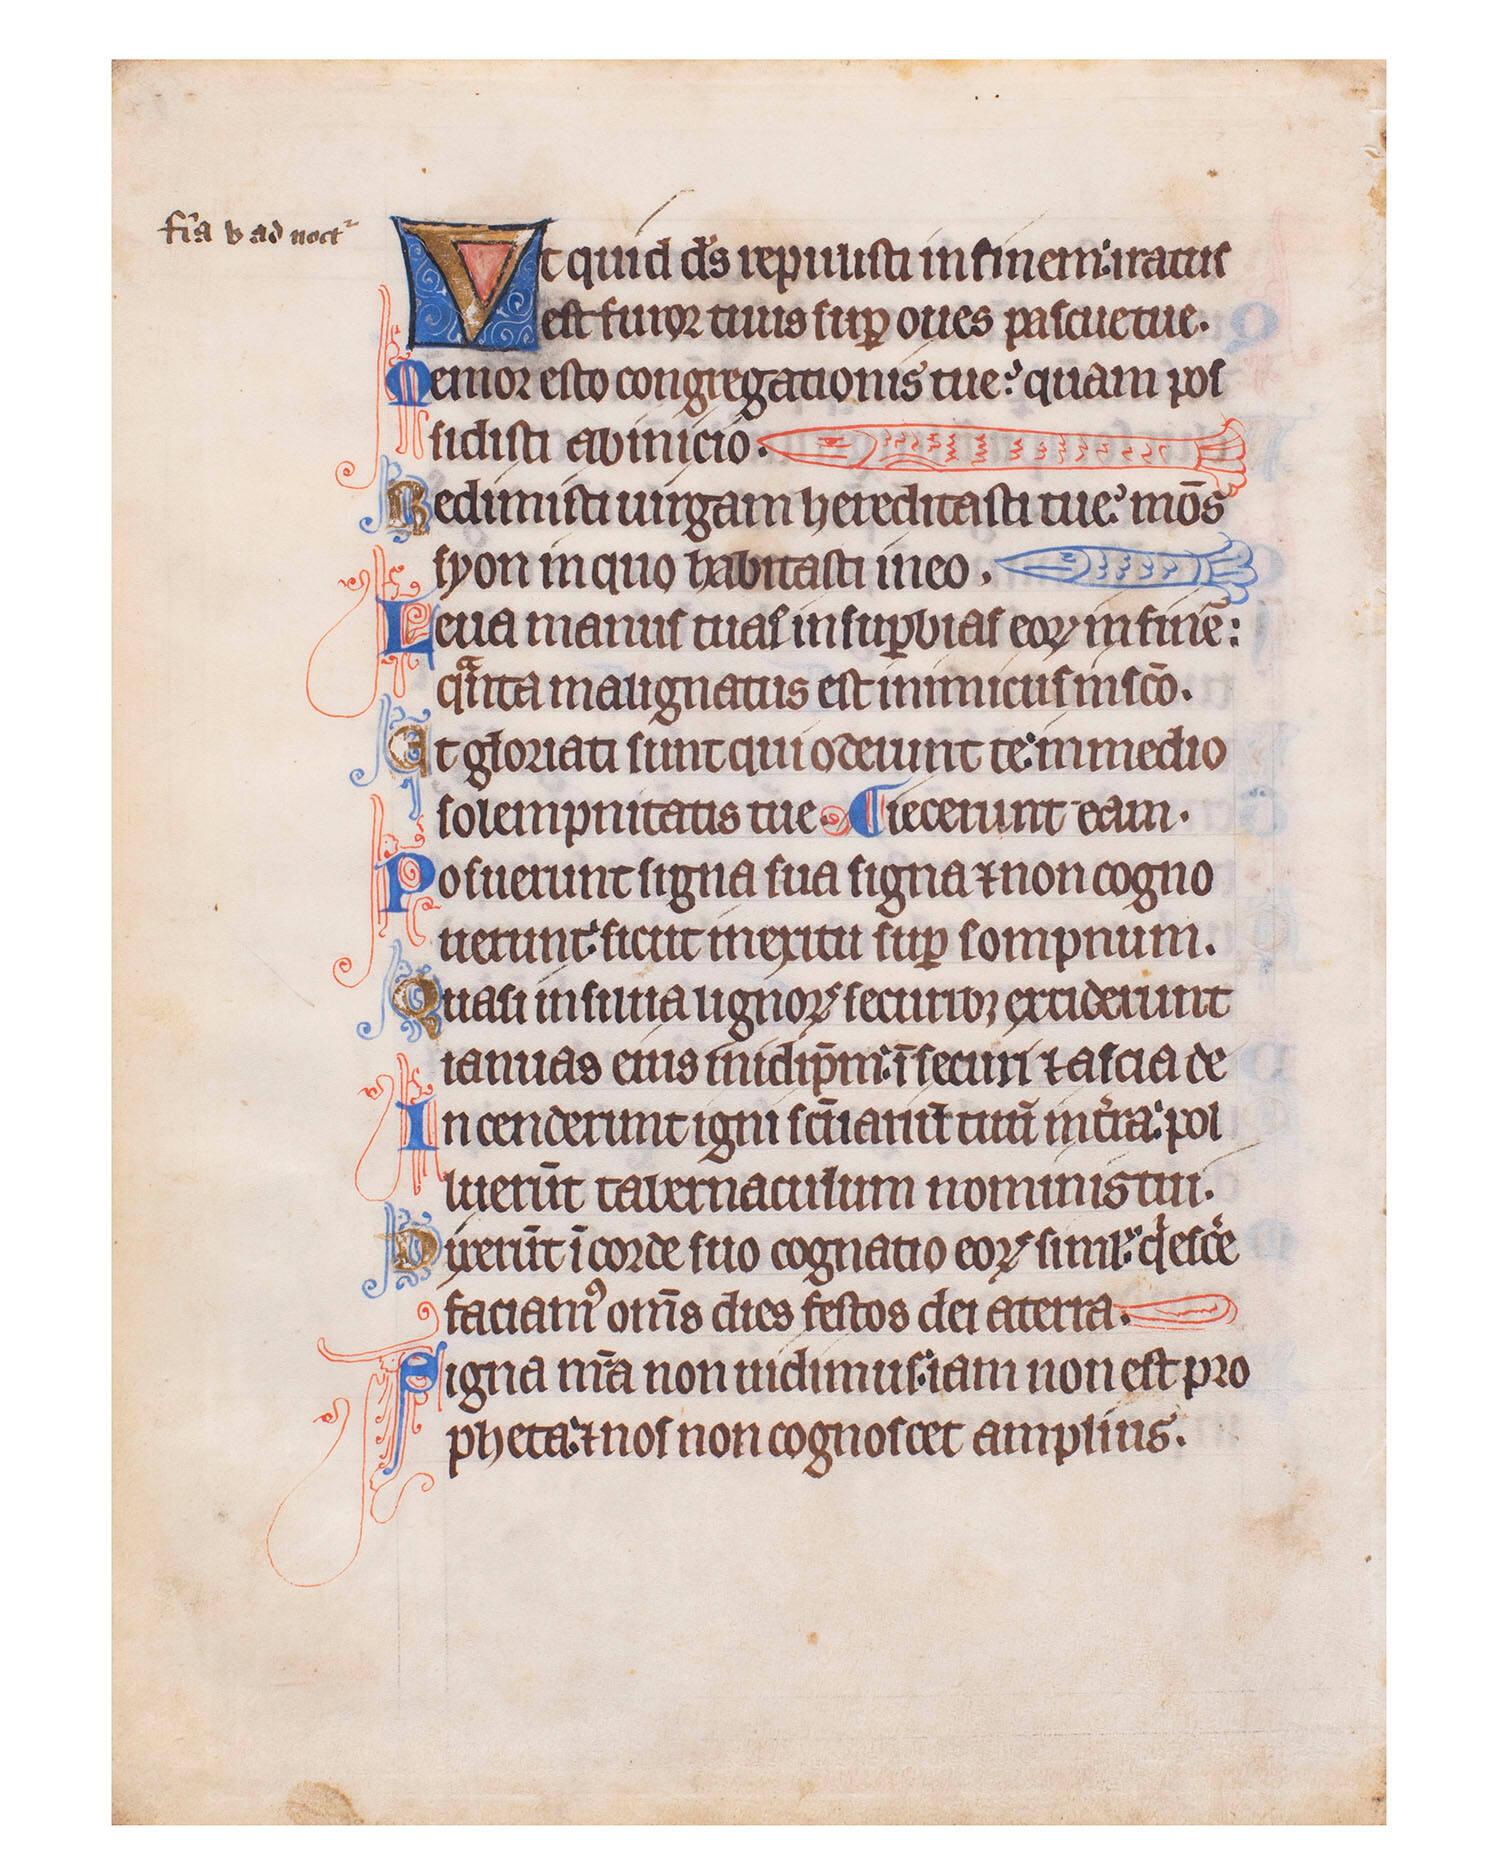 fr̄a v ad noct᷑
Vt quid d̄s repulisti in finem: iratus
est furor tuus sup̱ oues pascue tue.
Memor esto congregationis tue: quam pos
sidisti ab inicio.
Redimisti uirgam hereditatis tue: mōs
syon in quo habitasti in eo.
Leua manus tuas in sup̱bias eoꝝ in finē:
qᵃnta malignatus est inimicus in sc̄o.
Et gloriati sunt qui oderunt te: in medio
solempnitatis tue. Ciecerunt eam.
Posuerunt signa sua signa ⁊ non cogno
uerunt: sicut in exitu sup̱ sompnum.
Quasi in silua lignoꝝ securibꝫ exciderunt
ianuas eius in idip̄m: ī securi ⁊ ascia de
Incenderunt igni sc̄uariū tuū in tr̄a: pol
luerūt tabernaculum nominis tui.
Dixerūt ī corde suo cognatio eoꝝ simul: q̇esc̄e
faciamꝰ om̄s dies festos dei a terra.
Signa nr̄a non uidimus: iam non est pro
pheta: ⁊ nos non cognoscet amplius.